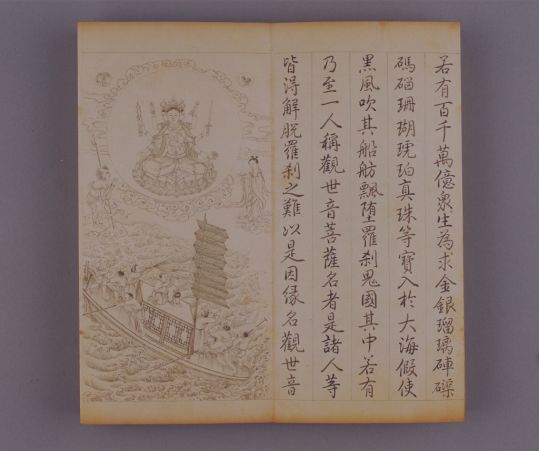 若有百千萬億衆生為求金銀瑠璃硨磲
碼碯珊瑚琥珀真珠等寶入於大海假使
黑風吹其船舫飄堕羅刹鬼國其中若有
乃至一人稱觀世音菩薩名者是諸人等
皆得解脫羅刹之難以是因緣名觀世音